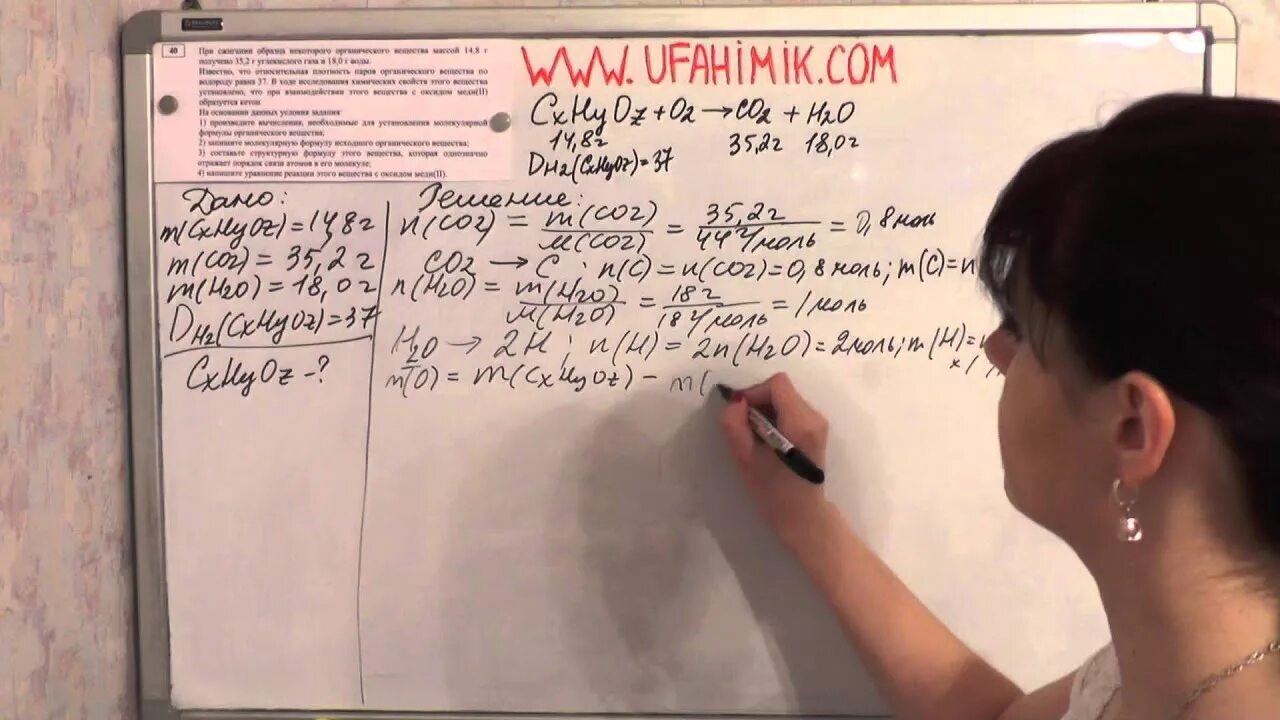 40
При сжигании образца некоторого органического вещества массой 14,8 г
получено 35,2 г углекислого газа и 18,0 г воды.
Известно, что относительная плотность паров органического вещества по
водороду равна 37. В ходе исследования химических свойств этого вещества
установлено, что при взаимодействии этого вещества с оксидом меди(II)
образуется кетон.
На основании данных условия задания:
1) произведите вычисления, необходимые для установления молекулярной
формулы органического вещества;
2) запишите молекулярную формулу исходного органического вещества;
3) составьте структурную формулу этого вещества, которая однозначно
отражает порядок связи атомов в его молекуле;
4) напишите уравнение реакции этого вещества с оксидом меди(II).
WWW.UFAHIMIK.COM
CxHyOz + O2 → CO2 + H2O
14,8г 35,2г 18,0г
DH2(CxHyOz)=37
Дано:
m(CxHyOz)=14,8г
m(CO2)=35,2г
m(H2O)=18,0г
DH2(CxHyOz)=37
CxHyOz-?
Решение:
n(CO2) = m(CO2)/M(CO2) = 35,2г/44г/моль = 0,8моль
CO2 → C; n(C)=n(CO2)=0,8моль; m(C)=n
n(H2O) = m(H2O)/M(H2O) = 18г/18г/моль = 1моль
H2O → 2H; n(H)=2n(H2O)=2моль; m(H)=
m(O) = m(CxHyOz) - m(